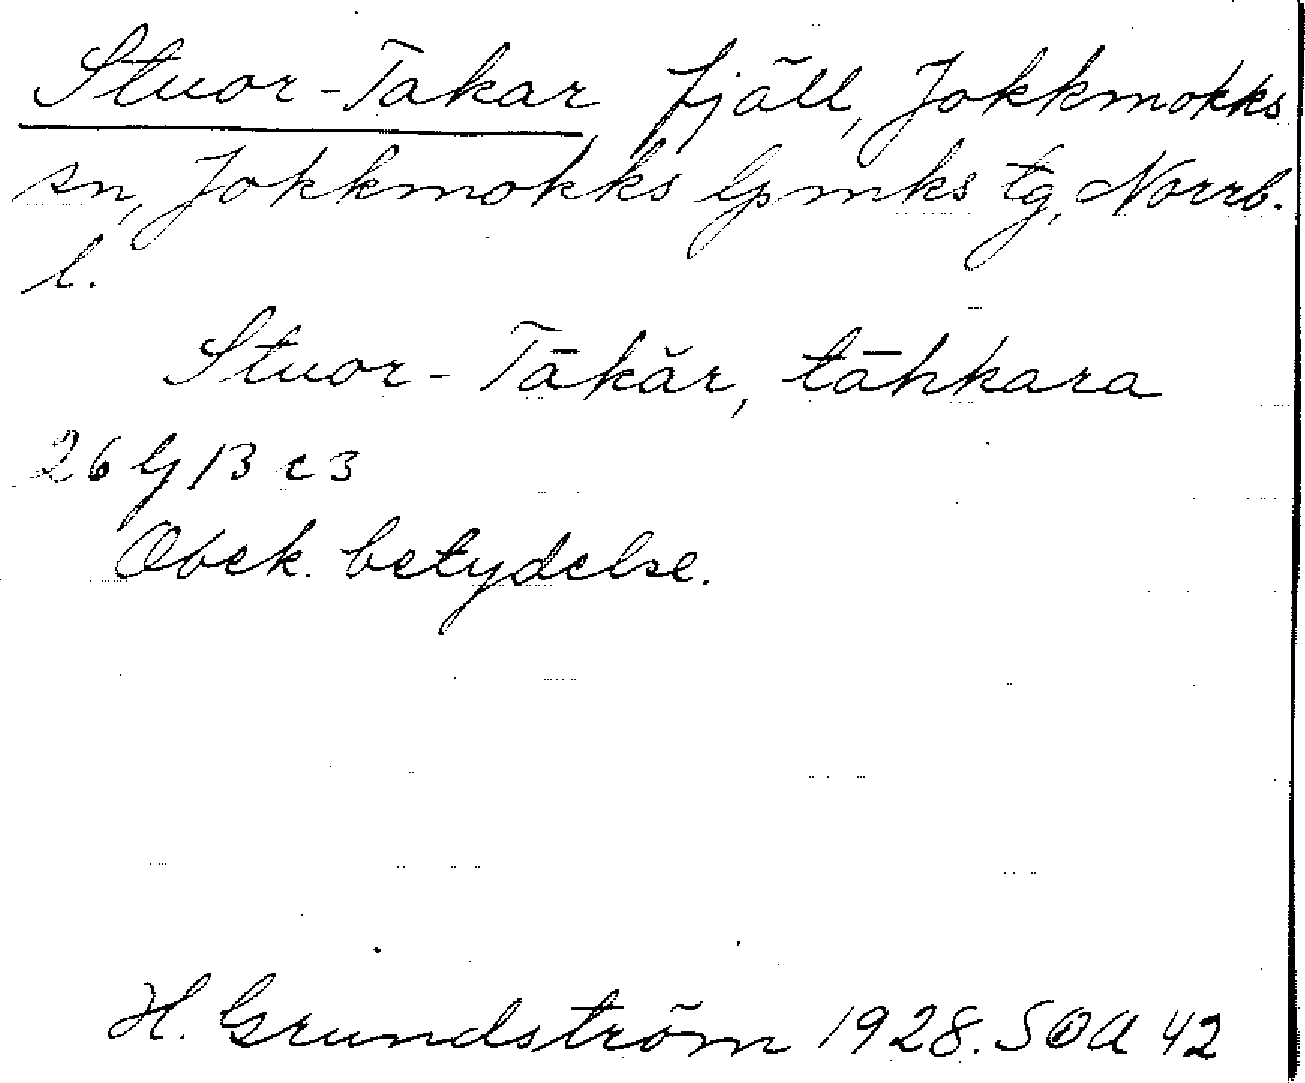 Stuor-Takar, fjäll, Jokkmokks
sn, Jokkmokks lpmks tg, Norrb.
l.
Stuor-Tākăr, tāhkara
26 G 13 c 3
Obek. betydelse.
H. Grundström 1928. SOA 42